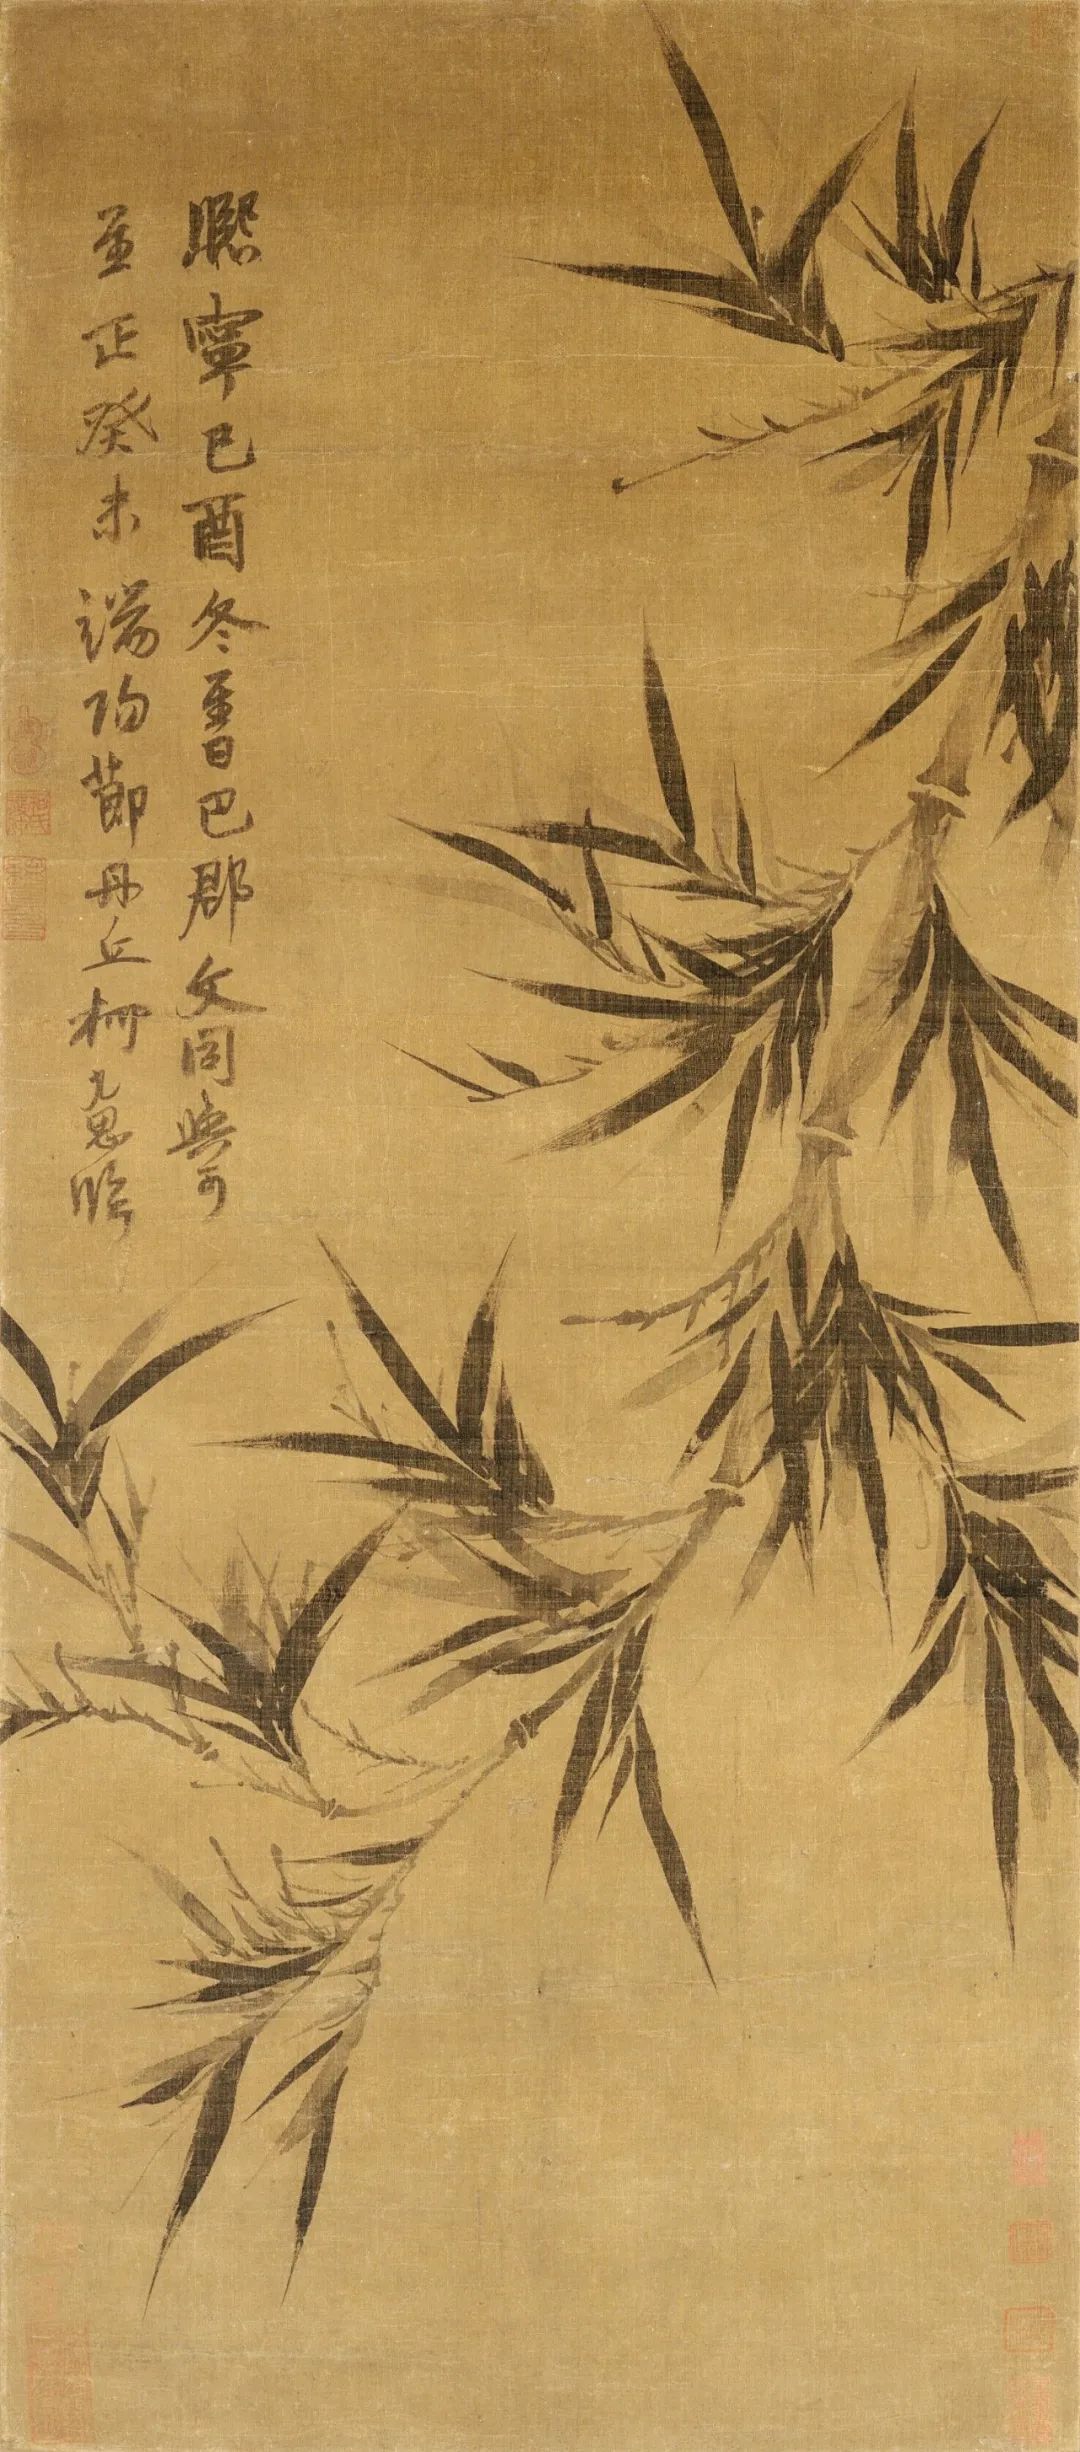 熙寧己酉冬至日巴郡文同與可
至正癸未端陽節丹丘柯九思臨